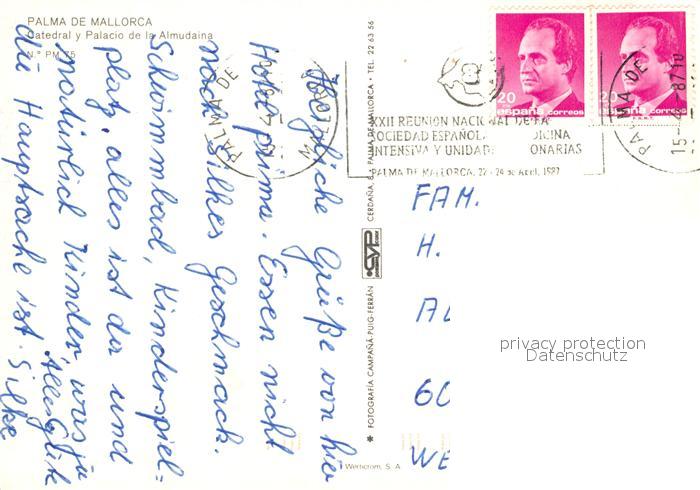 PALMA DE MALLORCA
Catedral y Palacio de la Almudaina
N.º PM 75
Herzliche Grüße von hier
Hotel prima. Essen nicht
nach Silkes Geschmack.
Schwimmbad, Kinderspiel-
platz, alles ist da und
natürlich Kinder, was ja
die Hauptsache ist.
Alles Gute
Silke
FOTOGRAFÍA CAMPAÑÁ-PUIG-FERRÁN
CYP
CERDAÑA, 8 - PALMA DE MALLORCA - TEL. 22 63 56
Werticrom, S. A.
PALMA DE
MALLORCA
20
españa correos
20
españa correos
PALMA DE
15-4-8710
XXII REUNION NACIONAL DE LA
SOCIEDAD ESPAÑOL DICINA
INTENSIVA Y UNIDADE ONARIAS
PALMA DE MALLORCA, 22 - 24 de Abril, 1987
FAM.
H.
WE
privacy protection
Datenschutz